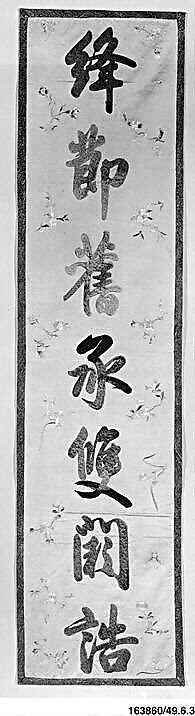 絳節舊承雙闕誥
163860/49.6.3